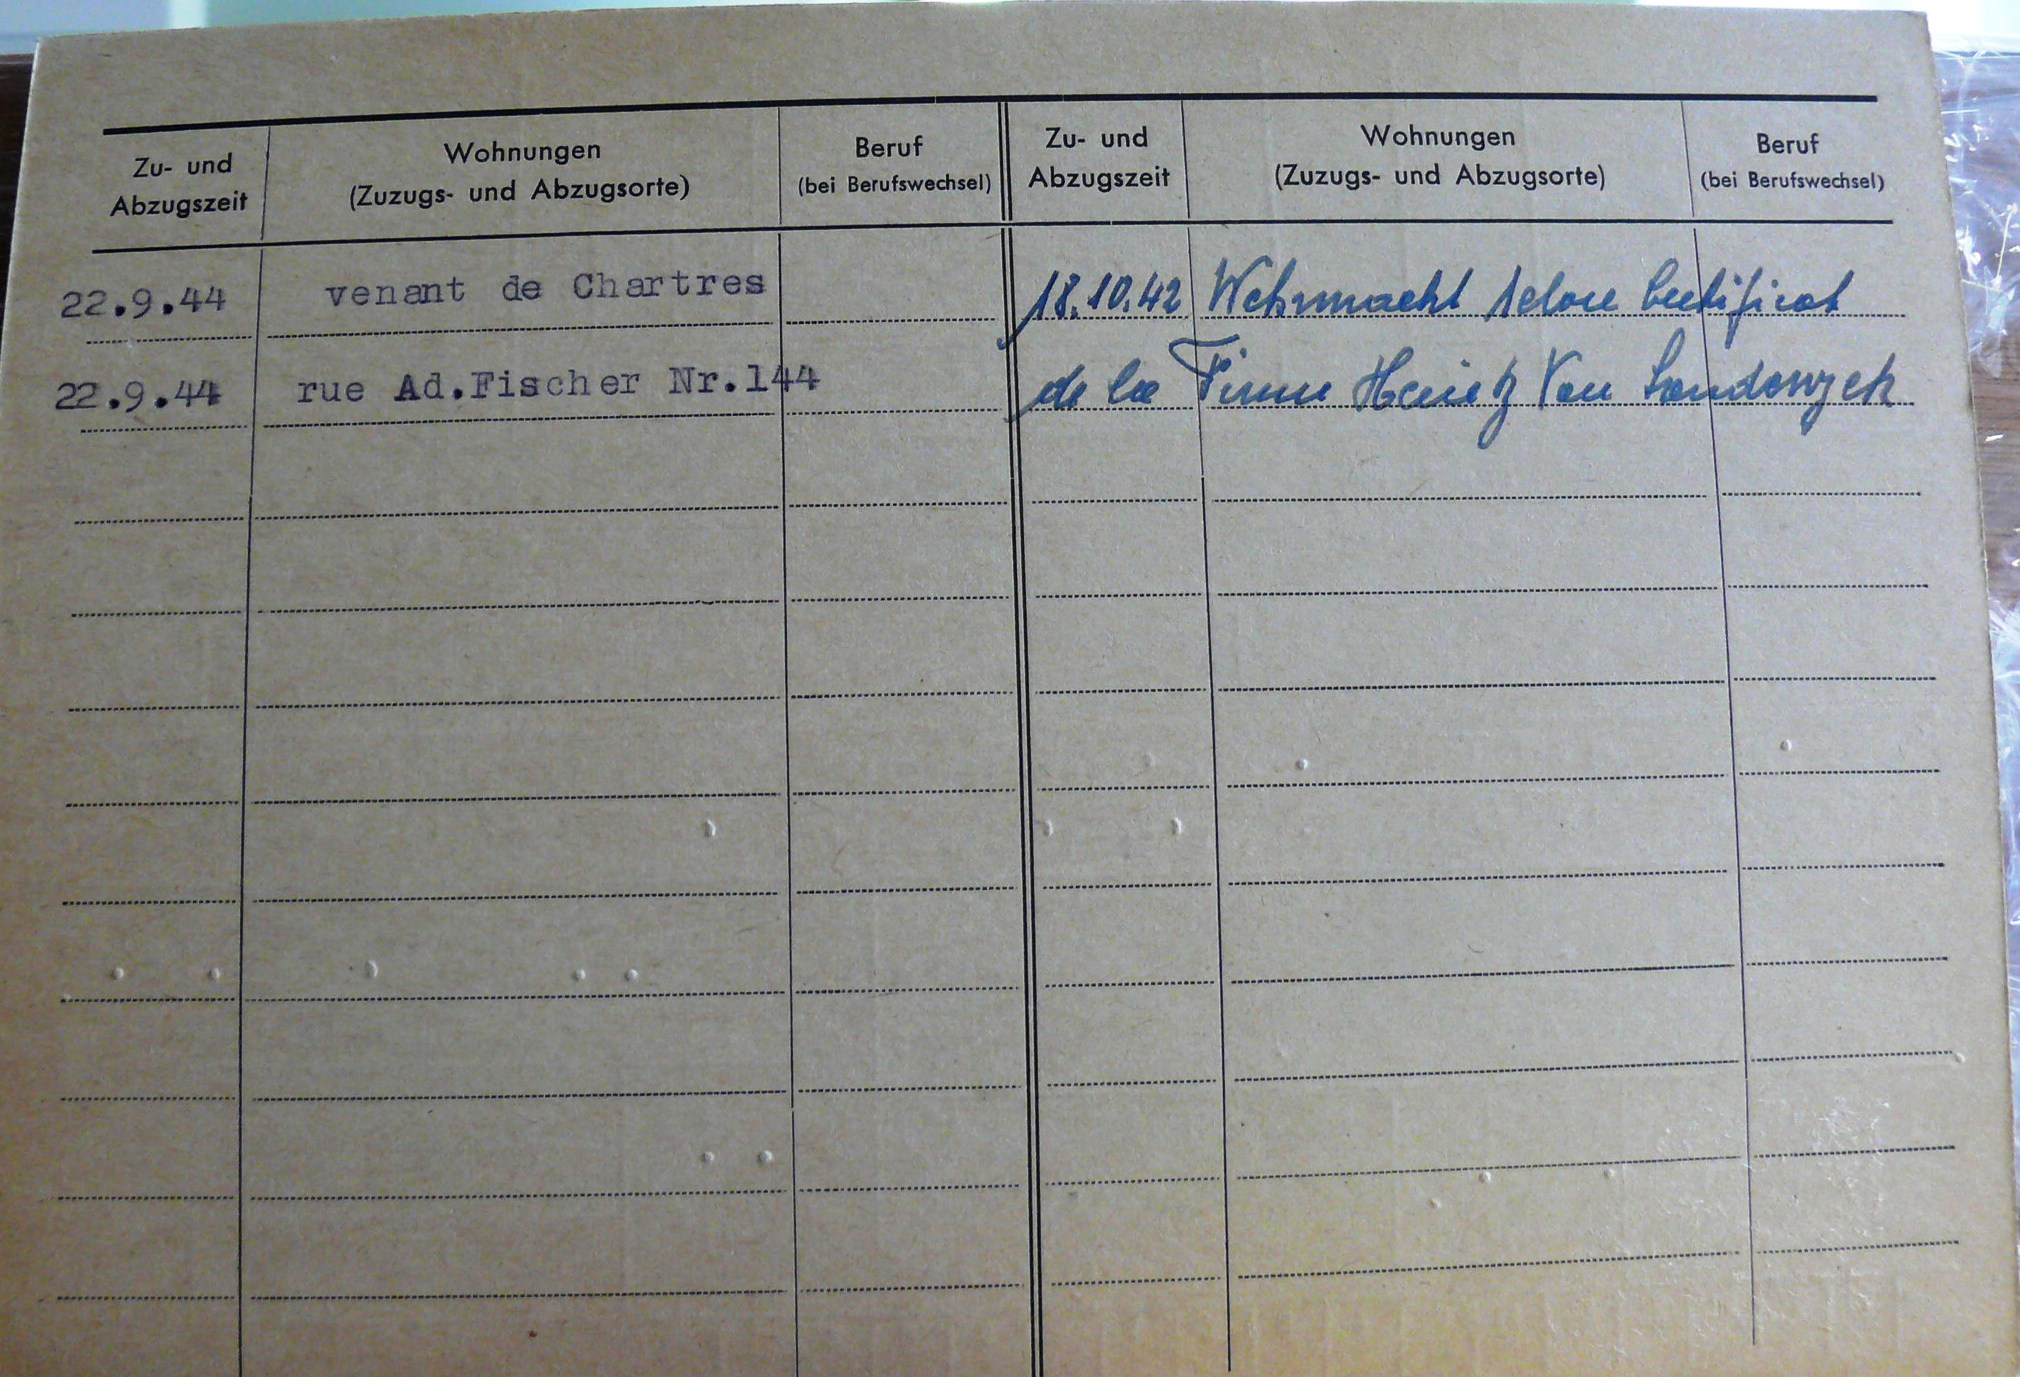 Zu- und
Abzugszeit
Wohnungen
(Zuzugs- und Abzugsorte)
Beruf
(bei Berufswechsel)
Zu- und
Abzugszeit
Wohnungen
(Zuzugs- und Abzugsorte)
Beruf
(bei Berufswechsel)
22.9.44 venant de Chartres
22.9.44 rue Ad.Fischer Nr.144
18.10.42 Wehrmacht selon Certificat
de la Firme Van